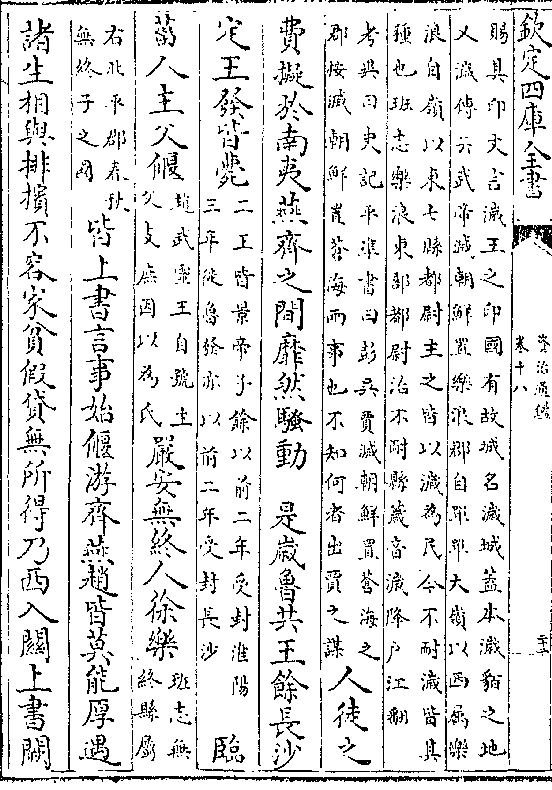 欽定四庫全書
資治通鑑
卷十八
賜其印文言濊王之印國有故城名濊城蓋本濊貊之地
又濊傳云武帝滅朝鮮置樂浪郡自單單大嶺以西屬樂
浪自嶺以東七縣都尉主之皆以濊為民今不耐濊皆其
種也班志樂浪東部都尉治不耐縣薉音濊降戶江翻
考異曰史記平準書曰彭吳賈滅朝鮮置蒼海之
郡按滅朝鮮置蒼海兩事也不知何者出賈之謀
人徒之
費擬於南夷燕齊之間靡然騷動 是歲魯共王餘長沙
定王發皆薨
二王皆景帝子餘以前二年受封淮陽
三年徙魯發亦以前二年受封長沙
臨
菑人主父偃
趙武靈王自號主
父支庶因以為氏
嚴安無終人徐樂
班志無
終縣屬
右北平郡春秋
無終子之國
皆上書言事始偃游齊燕趙皆莫能厚遇
諸生相與排擯不容家貧假貸無所得乃西入關上書闕